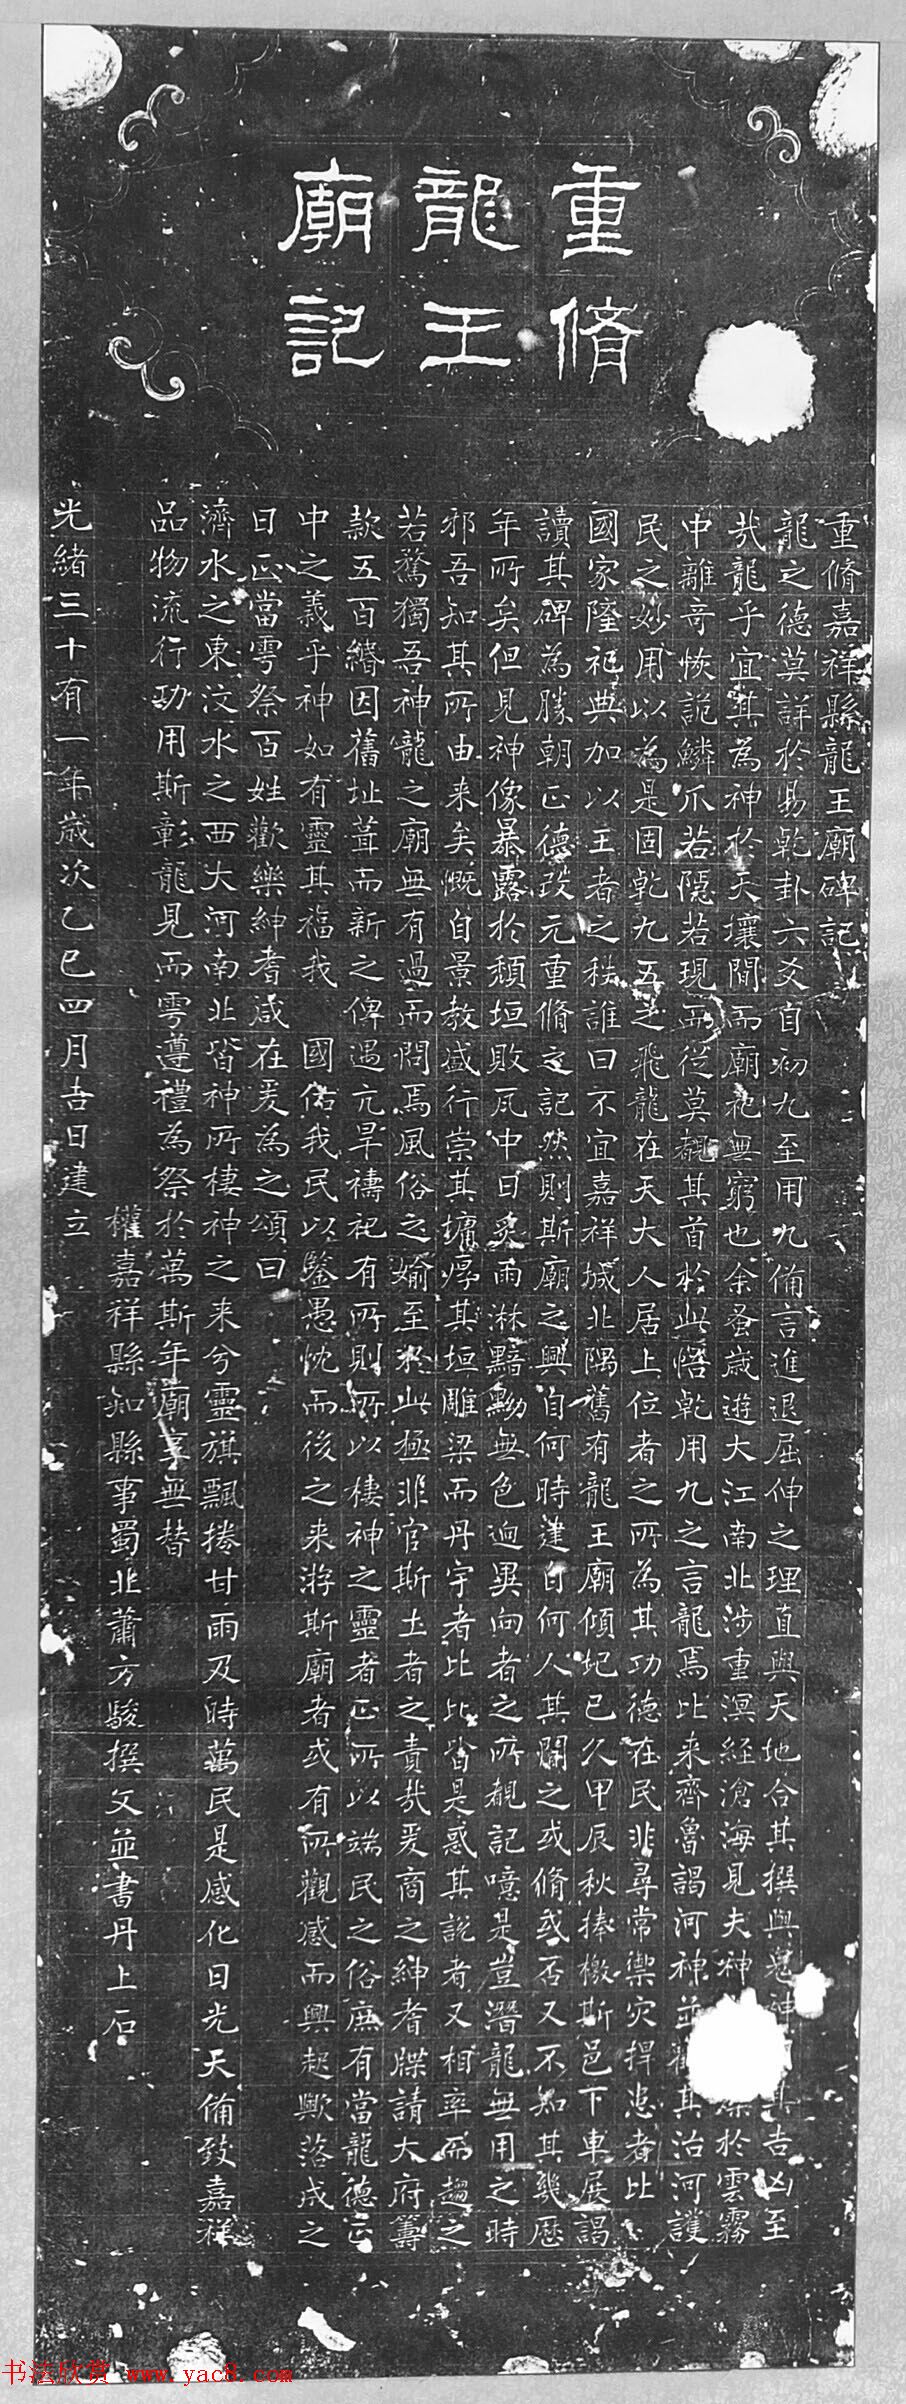 重脩
龍王
廟記
重脩嘉祥縣龍王廟碑記
龍之德莫詳於易乾卦六爻自初九至用九備言進退屈伸之理直與天地合其撰與鬼神其吉凶至
哉龍乎宜其為神於天壤間而廟祀無窮也余蚤歲遊大江南北涉重溟經滄海見夫神於雲霧
中離奇恢詭鱗爪若隱若現而從莫覩其首於此悟乾用九之言龍焉比来齊魯謁河神並其治河護
民之妙用以為是固乾九五之飛龍在天大人居上位者之所為其功德在民非尋常禦灾捍患者比
國家隆祀典加以王者之秩誰曰不宜嘉祥城北隅舊有龍王廟傾圮已久甲辰秋捧檄斯邑下車展謁
讀其碑為勝朝正德改元重脩之記然則斯廟之興自何時建自何人其間之或脩或否又不知其幾歷
年所矣但見神像暴露於頹垣敗瓦中日炙雨淋黯黝無色逈異向者之所覩記噫是豈潛龍無用之時
邪吾知其所由来矣慨自景教盛行崇其墉厚其垣雕梁而丹宇者比比皆是惑其說者又相率而趨之
若鶩獨吾神龍之廟無有過而問焉風俗之媮至於此極非官斯土者之責哉爰商之紳耆牒請大府籌
款五百緡因舊址葺而新之俾遇亢旱禱祀有所則所以棲神之靈者正所以端民之俗庶有當龍德正
中之義乎神如有靈其福我 國佑我民以鑒愚忱而後之来游斯廟者或有所觀感而興起歟落成之
日正當雩祭百姓歡樂紳耆咸在爰為之頌曰
濟水之東汶水之西大河南北皆神所棲神之来兮靈旗飄捲甘雨及時萬民是感化日光天備致嘉祥
品物流行功用斯彰龍見而雩遵禮為祭於萬斯年廟享無替
權嘉祥縣知縣事蜀北蕭方駿撰文並書丹上石
光緒三十有一年歲次乙巳四月吉日建立
书法欣赏 www.yac8.com